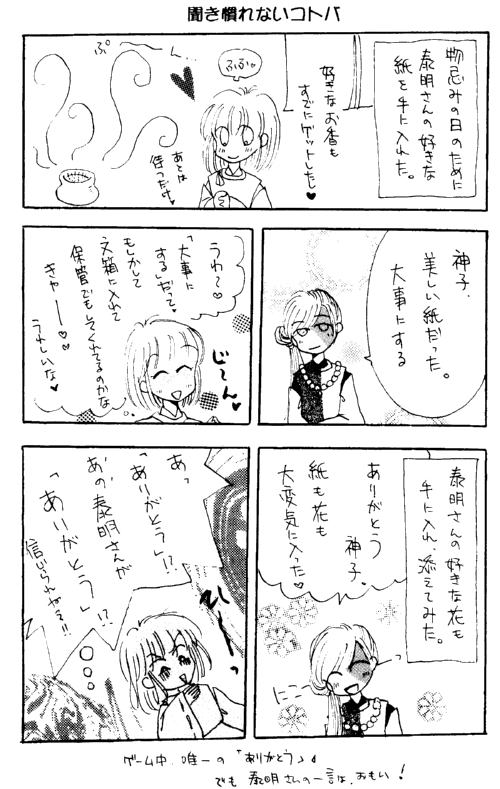 聞き慣れないコトバ
物忌みの日のために
泰明さんの好きな
紙を手に入れた。
好きなお香も
すでにゲットしたし♥
ふふっ
あとは
待つだけ♥
ぷ～ん
神子、
美しい紙だった。
大事にする
うわ～♡
「大事に
する」だって
もしかして
文箱に入れて
保管でもしてくれてるのかな
きゃーー♡♡
うれしいな♥
じ～ん♥
泰明さんの好きな花も
手に入れ、添えてみた。
ありがとう
神子、
紙も花も
大変気に入った♡
にこっ
あっ
「ありがとう」!?
あの、泰明さんが
「ありがとう」!?
信じられないぞ!!
ゲーム中、唯一の「ありがとう」。
でも泰明さんの一言は、おもい!